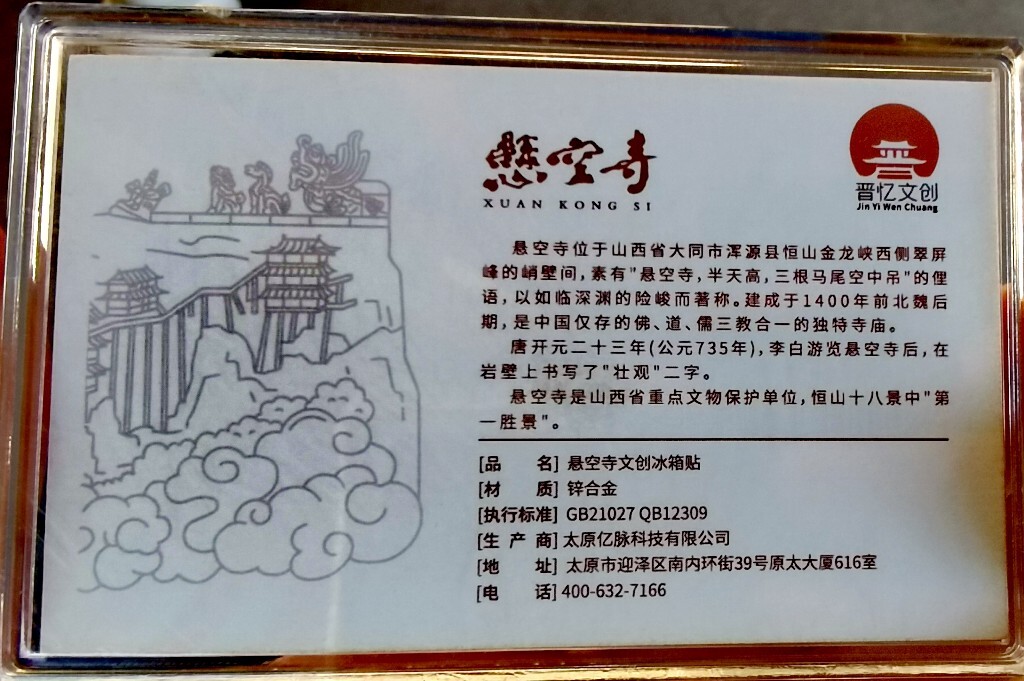 悬空寺
XUAN KONG SI
晋忆文创
Jin Yi Wen Chuang
悬空寺位于山西省大同市浑源县恒山金龙峡西侧翠屏
峰的峭壁间，素有"悬空寺，半天高，三根马尾空中吊"的俚
语，以如临深渊的险峻而著称。建成于1400年前北魏后
期，是中国仅存的佛、道、儒三教合一的独特寺庙。
唐开元二十三年(公元735年)，李白游览悬空寺后，在
岩壁上书写了"壮观"二字。
悬空寺是山西省重点文物保护单位，恒山十八景中"第
一胜景"。
[品 名] 悬空寺文创冰箱贴
[材 质] 锌合金
[执行标准] GB21027 QB12309
[生 产 商] 太原亿脉科技有限公司
[地 址] 太原市迎泽区南内环街39号原太大厦616室
[电 话] 400-632-7166